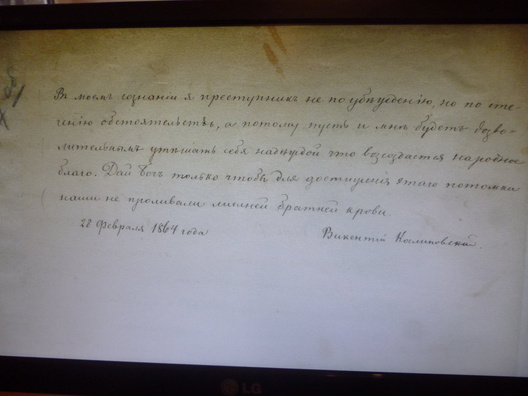 Въ моемъ сознаніи я преступникъ не по убѣжденію, но по сте-
ченію обстоятельствъ, а потому пусть и мнѣ будетъ дозво-
лительнымъ утѣшать себя надеждой что возсоздастся народное
благо. Дай Богъ только чтобъ для достиженія этаго потомки
наши не проливали лишней братней крови.
28 Февраля 1864 года
Викентій Калиновскій.
LG